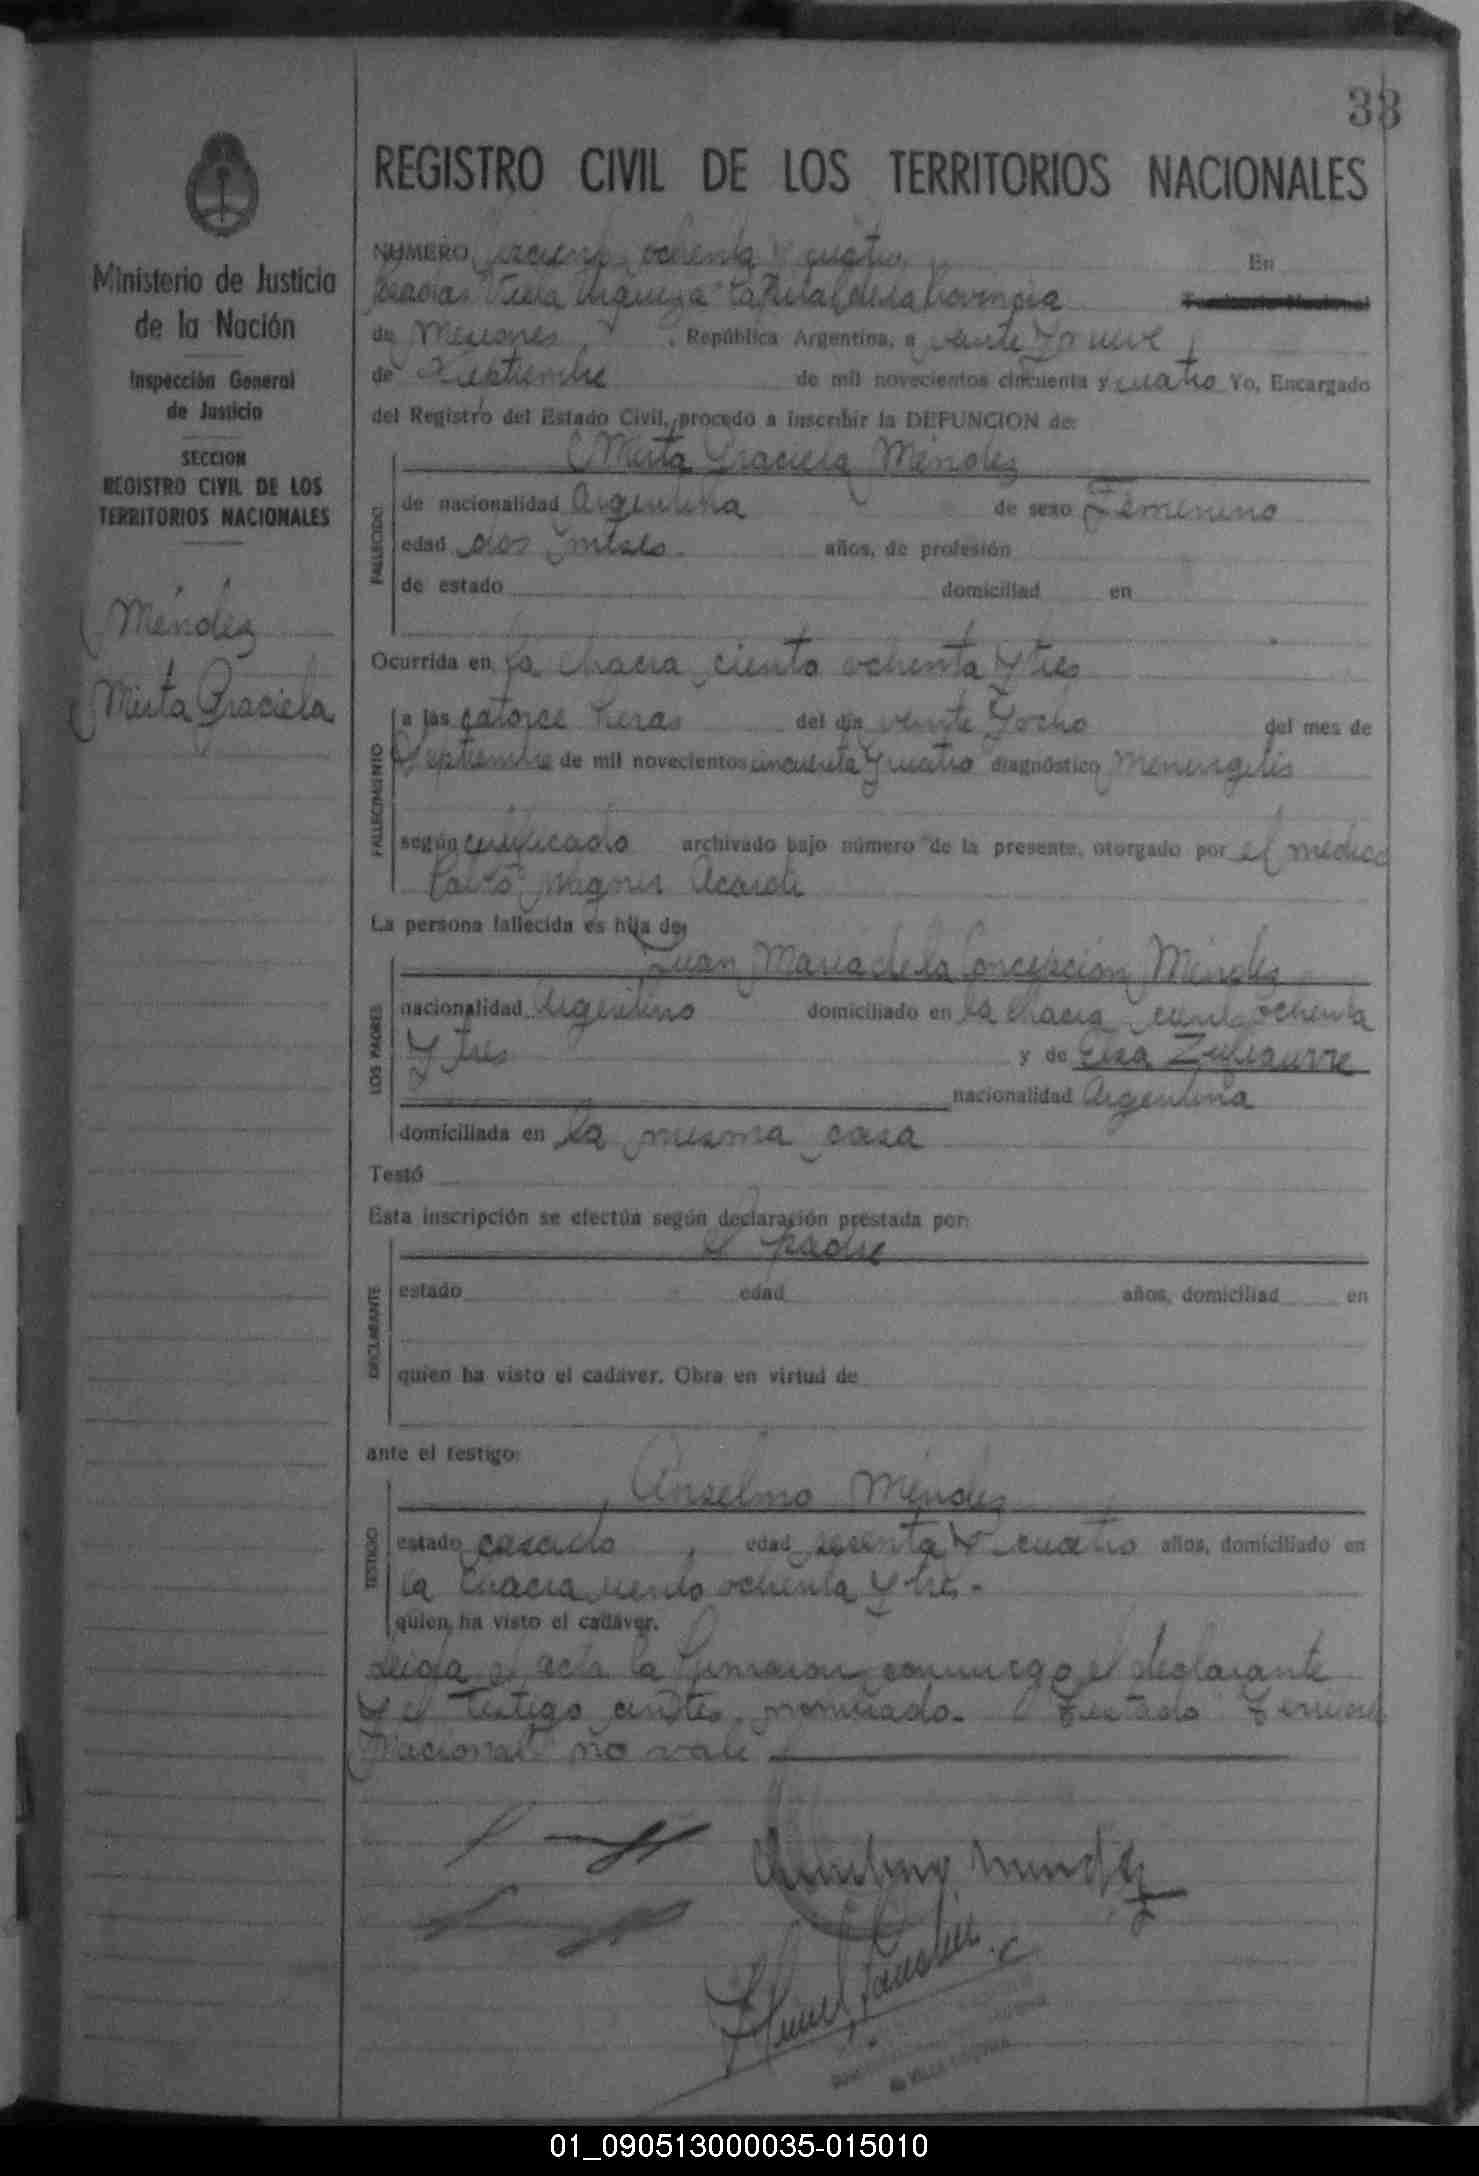 38
REGISTRO CIVIL DE LOS TERRITORIOS NACIONALES
Ministerio de Justicia
de la Nación
Inspección General
de Justicia
SECCION
REGISTRO CIVIL DE LOS
TERRITORIOS NACIONALES
Méndez
Mirta Graciela
NUMERO ochenta y cuatro En
Posadas Villa Urquiza Capital de la Provincia
de Misiones, República Argentina, a veinte y nueve
de Septiembre de mil novecientos cincuenta y cuatro Yo, Encargado
del Registro del Estado Civil, procedo a inscribir la DEFUNCION de:
Mirta Graciela Méndez
FALLECIDO
de nacionalidad Argentina de sexo Femenino
edad dos meses años, de profesión
de estado domiciliad en
Ocurrida en la chacra ciento ochenta y tres
FALLECIMIENTO
a las catorce horas del día veinte y ocho del mes de
Septiembre de mil novecientos cincuenta y cuatro diagnóstico Meningitis
según certificado archivado bajo número de la presente, otorgado por el médico
La persona fallecida es hija de:
Juan María de la Concepción Méndez
LOS PADRES
nacionalidad Argentino domiciliado en la chacra ciento ochenta
y tres y de Elsa
nacionalidad Argentina
domiciliada en la misma casa
Testó
Esta inscripción se efectúa según declaración prestada por:
el padre
DECLARANTE
estado edad años, domiciliad en
quien ha visto el cadáver. Obra en virtud de
ante el testigo:
Anselmo Méndez
TESTIGO
estado casado, edad sesenta y cuatro años, domiciliado en
la chacra ciento ochenta y tres.-
quien ha visto el cadáver.
Leida el acta la firmaron conmigo el declarante
y el testigo antes nombrado. Testado: Territorio
Nacional no vale
Anselmo Mendez
01_090513000035-015010